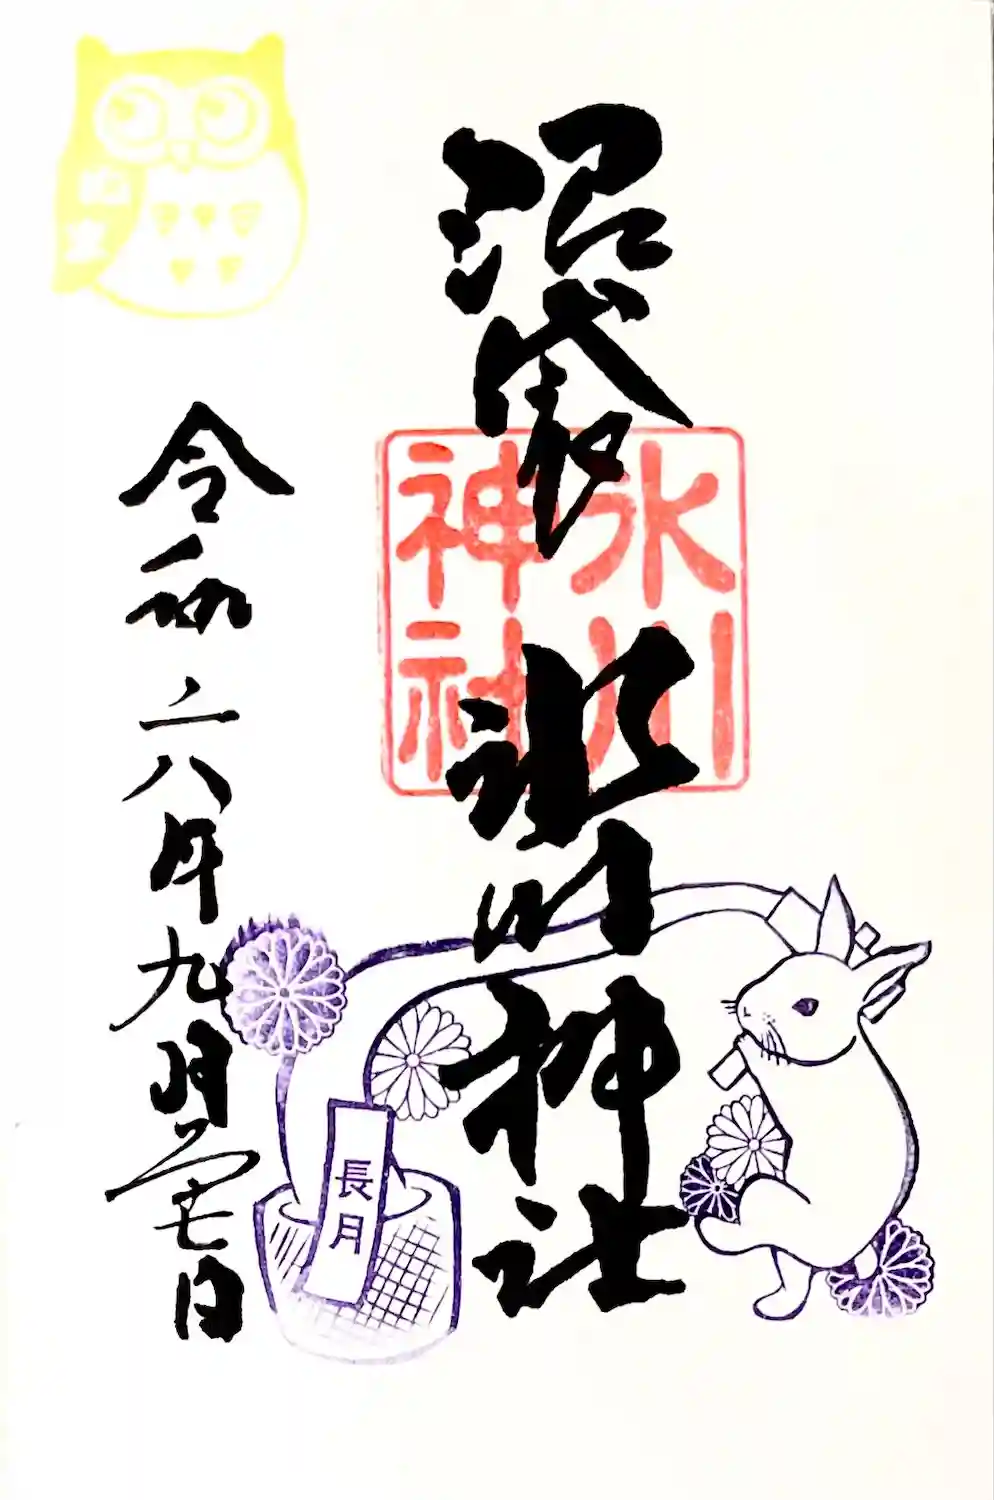 沼袋 氷川神社
氷川
神社
令和六年九月二十七日
長月